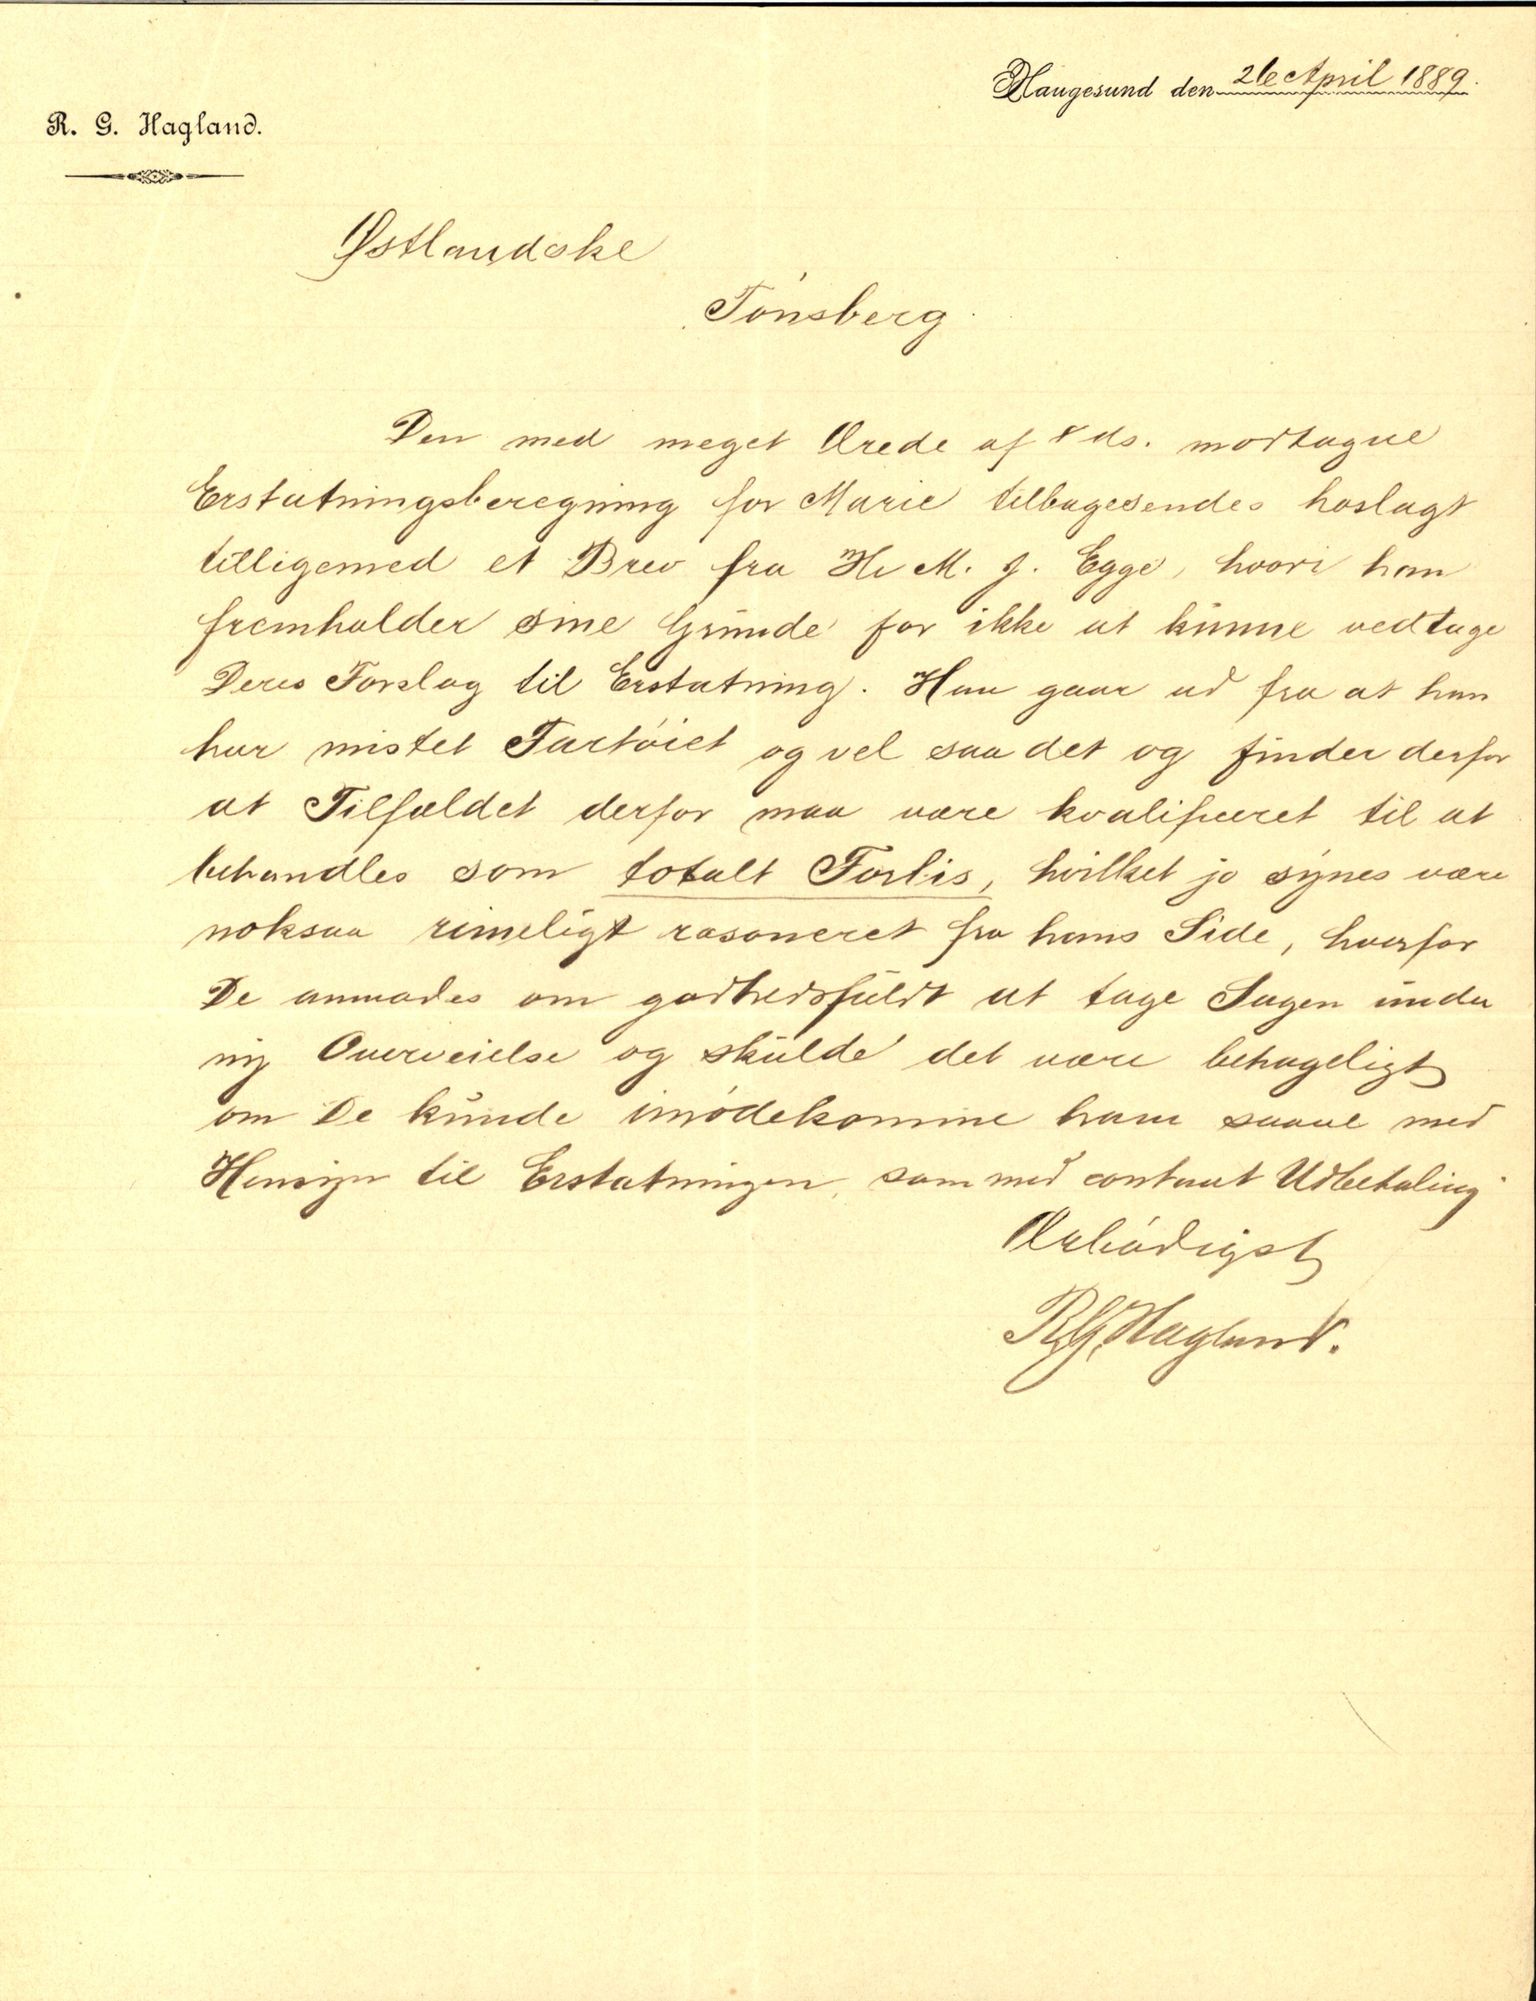 Haugesund den 26 April 1889.
R. G. Hagland.
Østlandske
Tönsberg.
Den med meget Ærede af ds. modtagne
Erstatningsberegning for Marie tilbagesendes hoslagt
tilligemed et Brev fra Hr M. J. Egge, hvori han
fremholder sine Grunde for ikke at kunne vedtage
Deres Forslag til Erstatning. Han gaar ud fra at han
har mistet Fartöiet og vel saa det og finder derfor
at Tilfældet derfor maa være kvalificeret til at
behandles som totalt Forlis, hvilket jo synes være
noksaa rimeligt rasoneret fra hans Side, hvorfor
De anmodes om godhedsfuldt at tage Sagen under
ny Overveielse og skulde det være behageligt
om De kunde imödekomme ham saavel med
Hensyn til Erstatningen, som med contant Udbetaling.
Ærbödigst
R. G. Hagland.